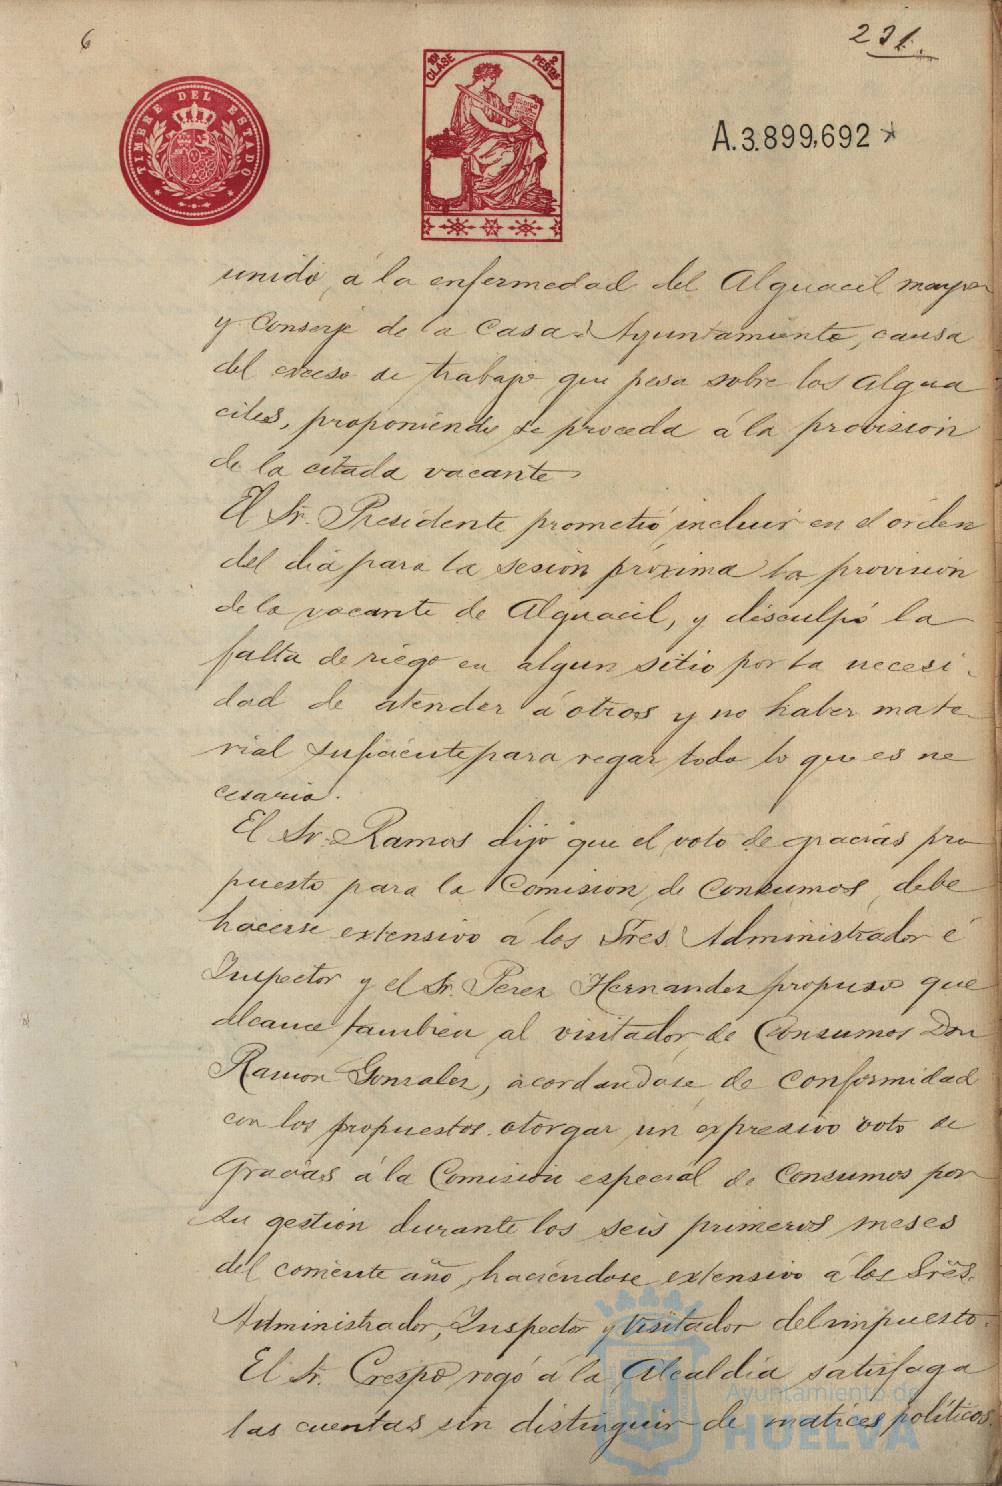 6
231.
TIMBRE DEL ESTADO
11ª CLASE
2 PESETAS
A.3.899,692*
unido, á la enfermedad del Alguacil mayor
y Conserje de la Casa Ayuntamiento, causa
del exceso de trabajo que pesa sobre los Algua
ciles, proponiendo se proceda á la provision
de la citada vacante
El Sr. Presidente prometió incluir en el órden
del dia para la sesión próxima la provisión
de la vacante de Alguacil, y disculpó la
falta de riego en algun sitio por la necesi-
dad de atender á otros y no haber mate-
rial suficiente para regar todo lo que es ne
cesario.
El Sr. Ramos dijo que el voto de gracias pro
puesto para la Comision de Consumos, debe
hacerse extensivo á los Sres. Administrador é
Inspector y el Sr. Perez Hernandez propuso que
alcance tambien al visitador de Consumos Don
Ramon Gonzalez, acordandose de conformidad
con los propuestos otorgar un expresivo voto de
Gracias á la Comisión especial de Consumos por
su gestión durante los seis primeros meses
del corriente año, haciéndose extensivo á los Sres.
Administrador, Inspector y Visitador del impuesto.
El Sr. Crespo rogó á la Alcaldía satisfaga
las cuentas sin distinguir de matices políticos.
Ayuntamiento de
HUELVA